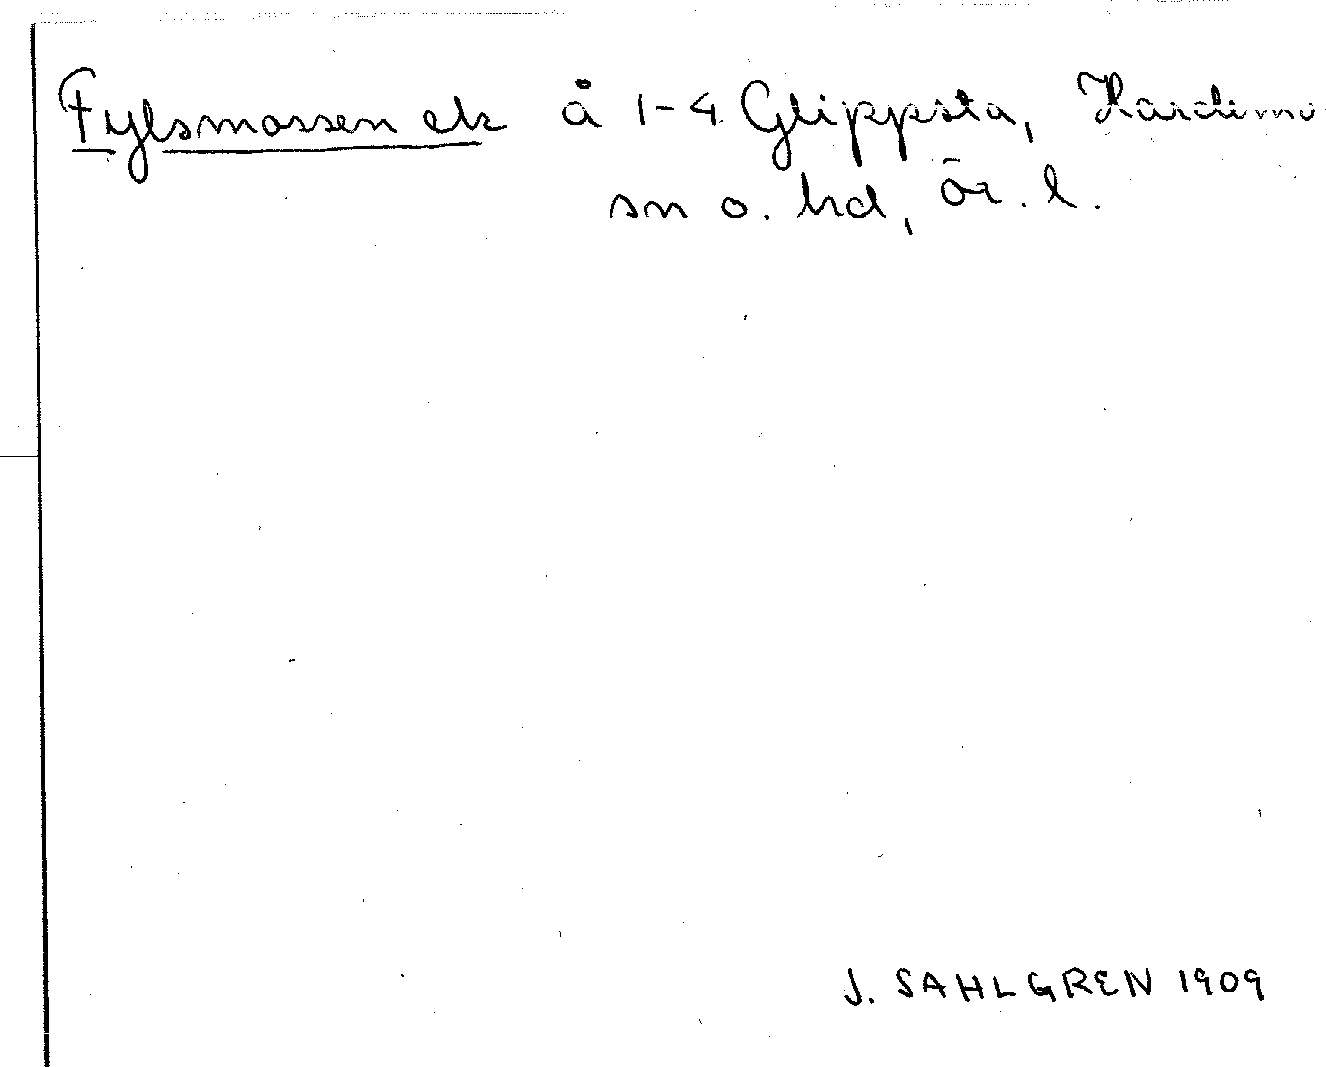 Fylsmossen ek å 1-4 Glippsta, Hardemo
sn o. hd, Ör. l.
J. SAHLGREN 1909